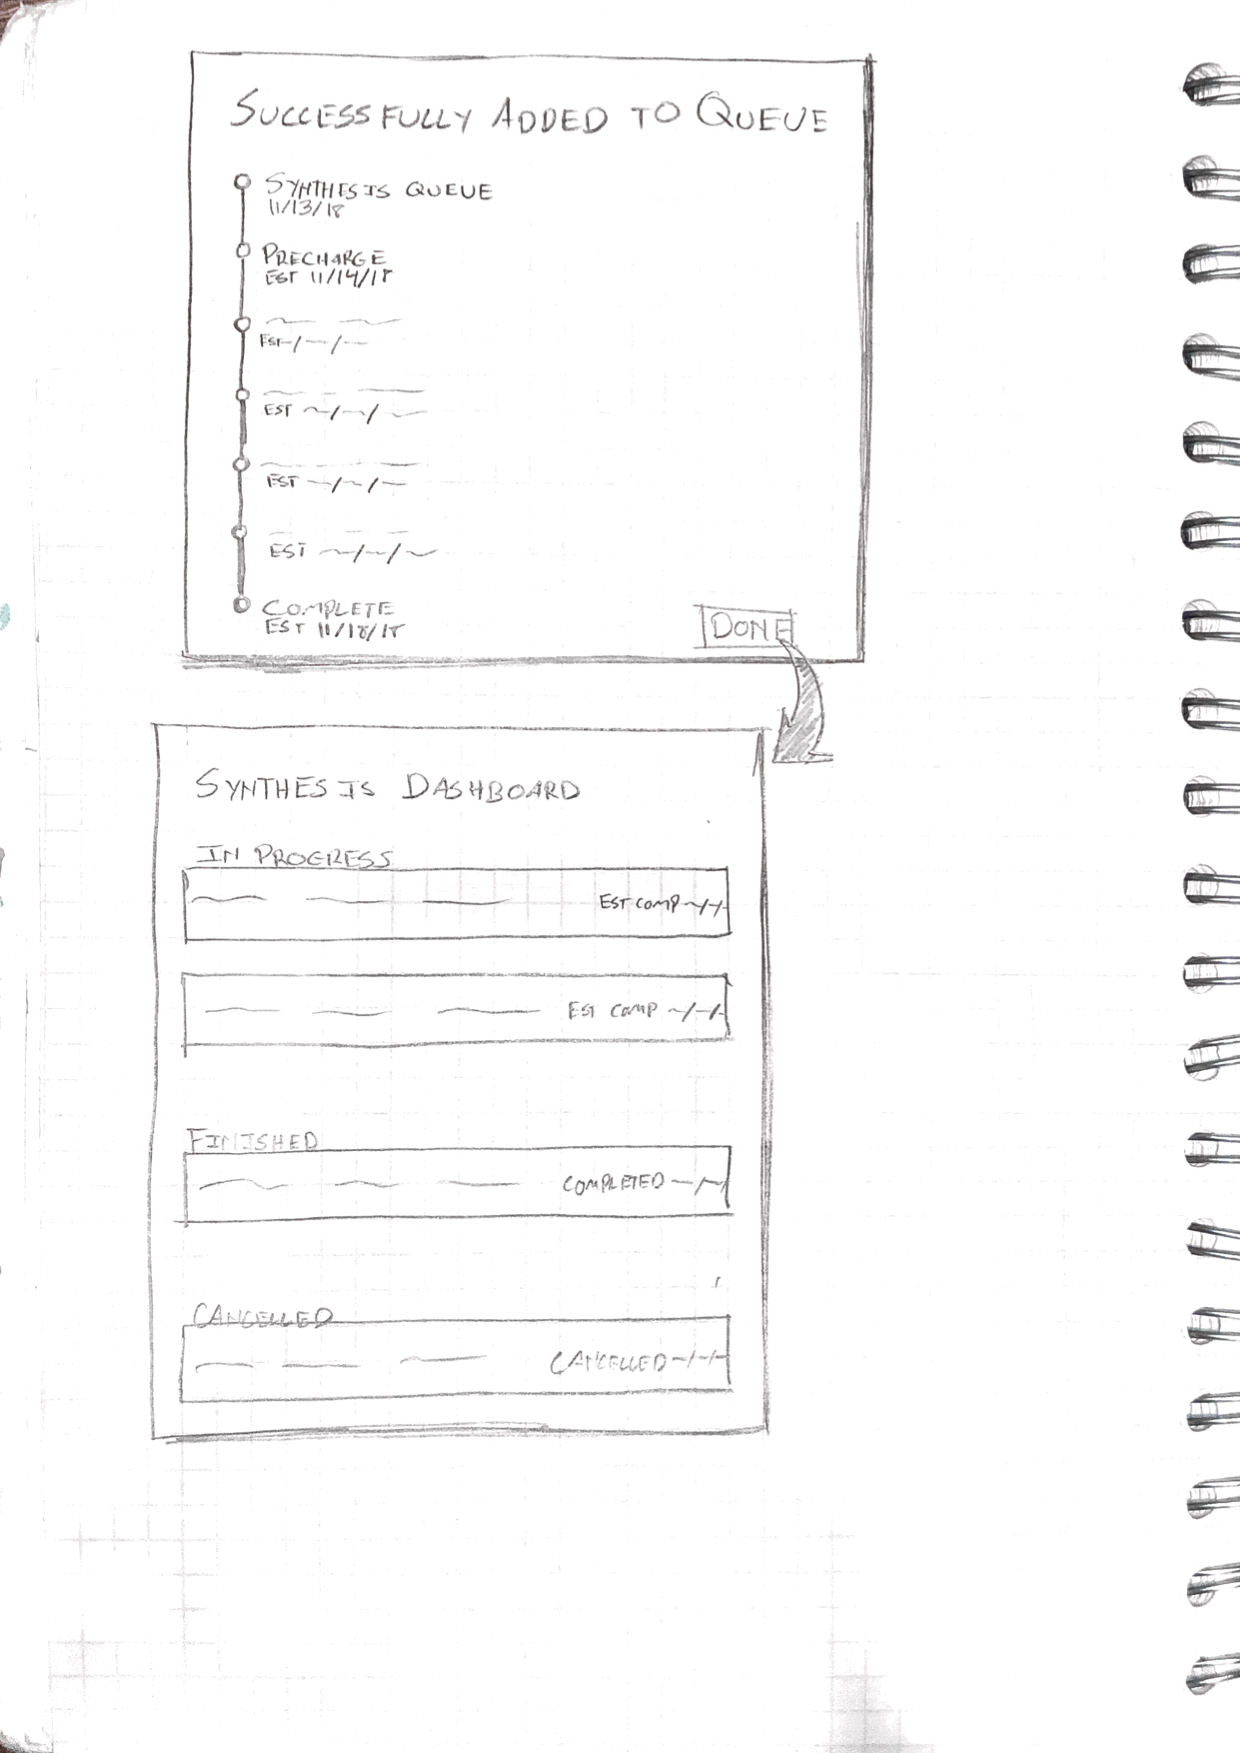 SUCCESSFULLY ADDED TO QUEUE
SYNTHESIS QUEUE
11/13/18
PRECHARGE
EST 11/14/18
EST -/-/-
EST ~/~/~
EST ~/~/~
EST ~/~/~
COMPLETE
EST 11/18/18
DONE
SYNTHESIS DASHBOARD
IN PROGRESS
EST COMP ~/-/-
EST COMP ~/-/-
FINISHED
COMPLETED -/~/
CANCELLED
CANCELLED -/-/-